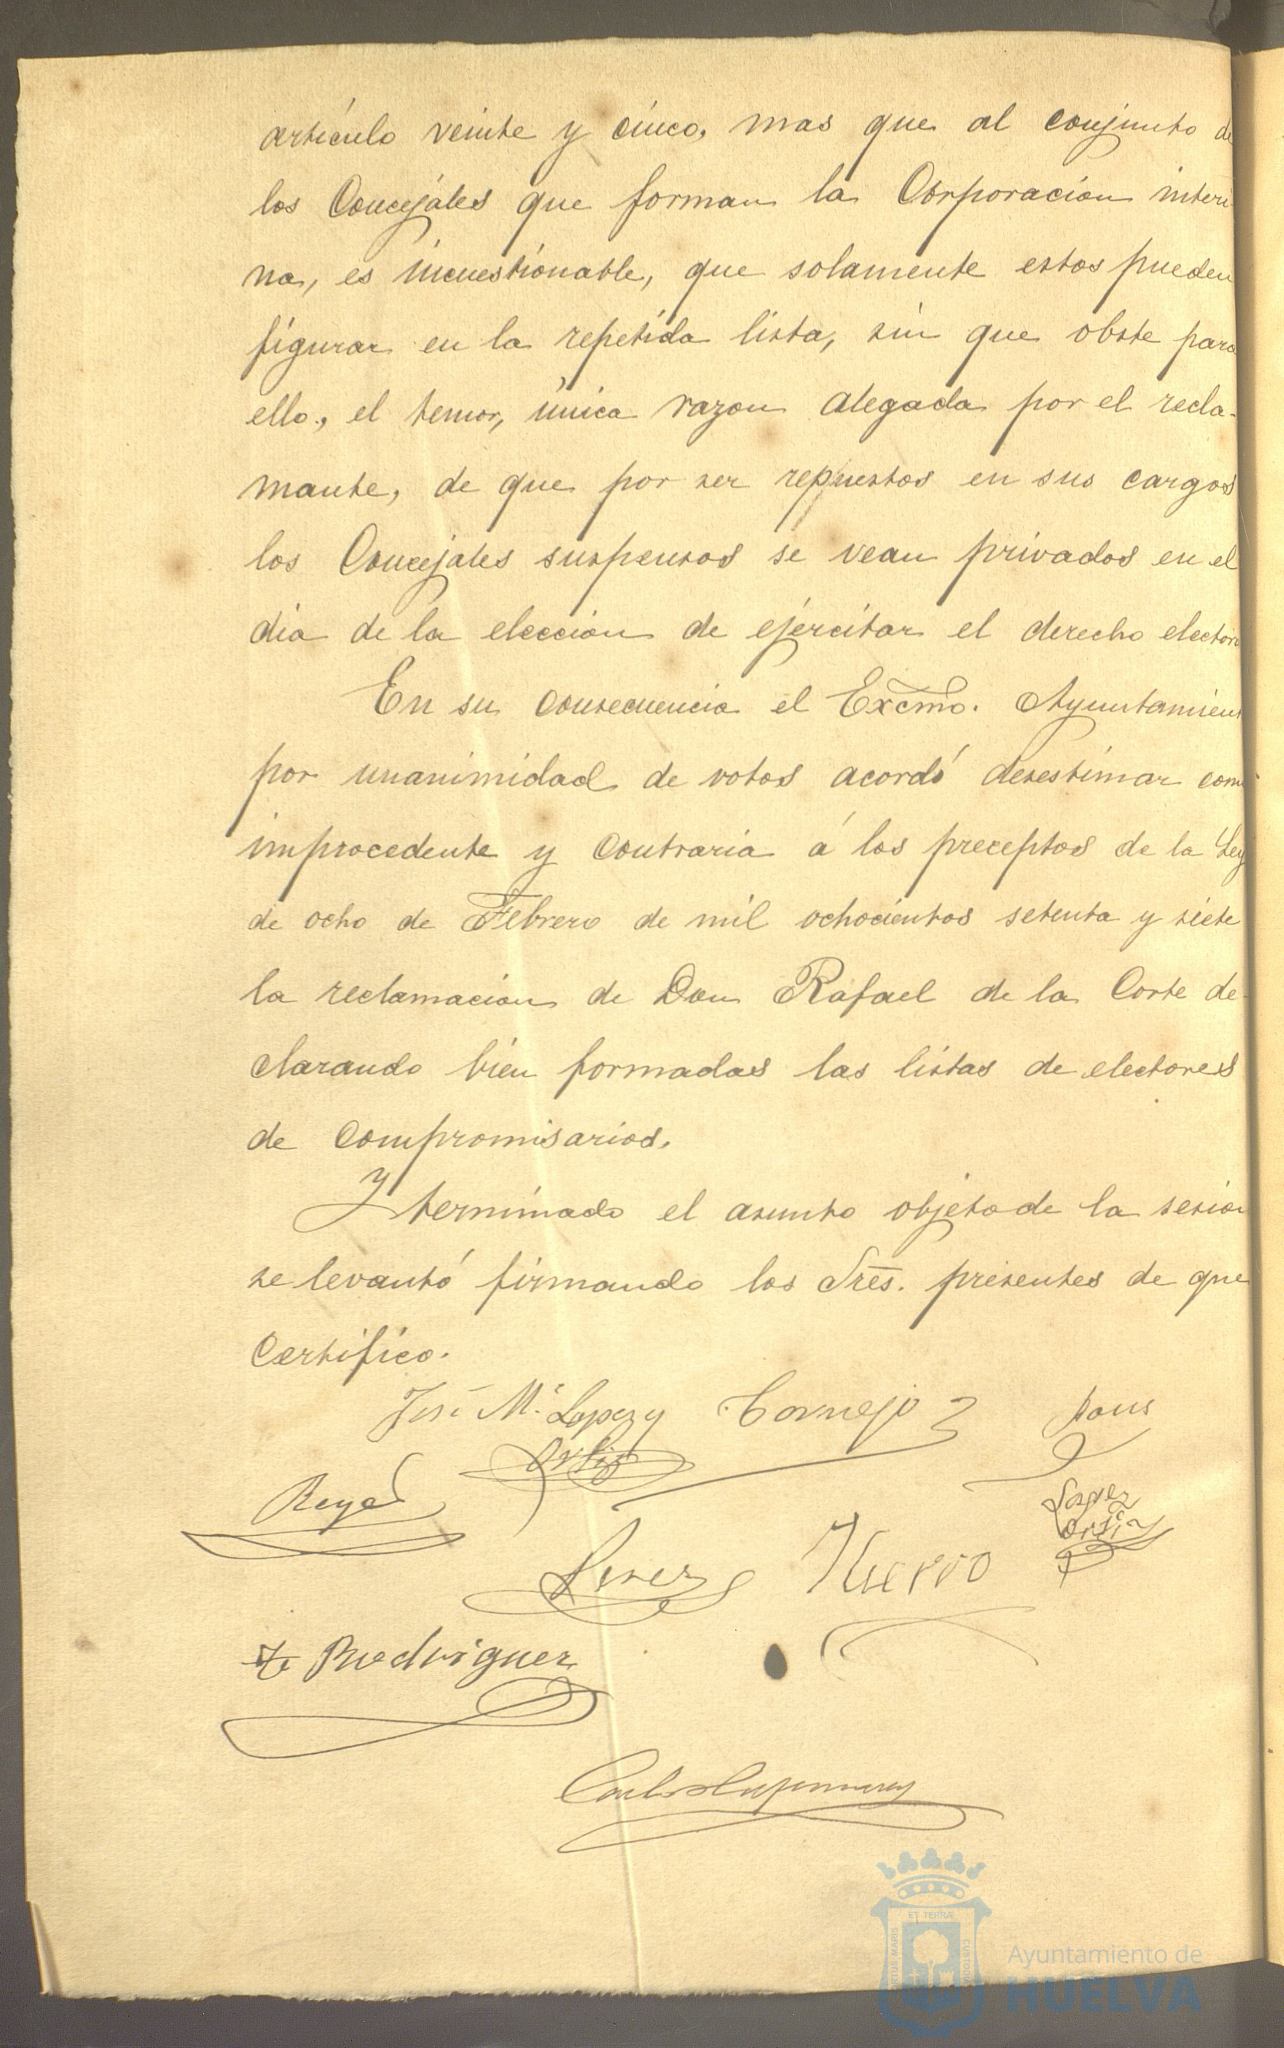 artículo veinte y cinco, mas que al conjunto de
los Concejales que forman la Corporacion interi-
na, es incuestionable, que solamente estos pueden
figurar en la repetida lista, sin que obste para
ello, el temor, única razon alegada por el recla-
mante, de que por ser repuestos en sus cargos
los Concejales suspensos se vean privados en el
dia de la eleccion de ejercitar el derecho elector
En su consecuencia el Excmo. Ayuntamien
por unanimidad de votos acordó desestimar com
improcedente y contraria á los preceptos de la Ley
de ocho de Febrero de mil ochocientos setenta y siete
la reclamacion de Don Rafael de la Corte de-
clarando bien formadas las listas de electores
de Compromisarios.
Y terminado el asunto objeto de la sesion
se levantó firmando los Sres. presentes de que
Certifico.
José Mª Lopez y Cornejo Pons
Ortiz
Reyes
Lopez
Ortiz
Perez Kuerro
Rodriguez
ET TERRÆ
PORTUS MARIS
CUSTODIA
Ayuntamiento de
HUELVA